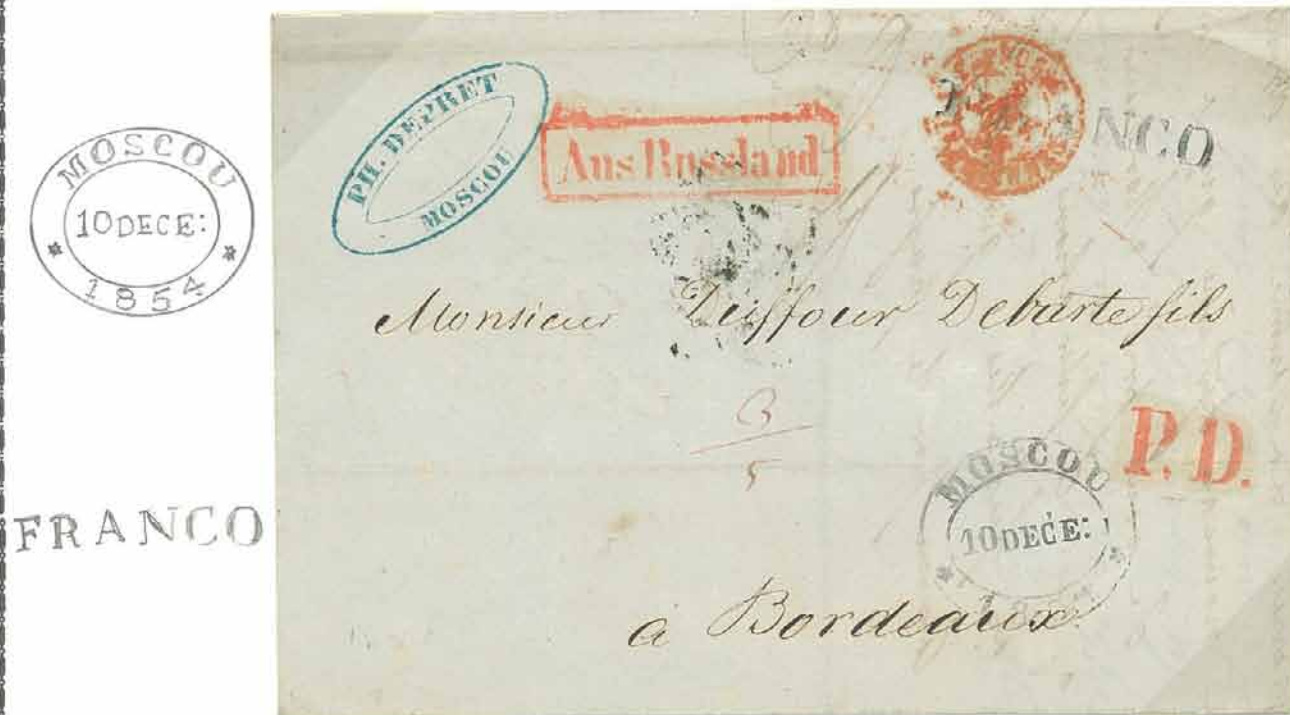 MOSCOU
10 DECE:
1854
FRANCO
PH. DEPRET
MOSCOU
Aus Russland
Monsieur Duffour Debarte fils
3
5
P.D.
MOSCOU
10 DECE:
à Bordeaux